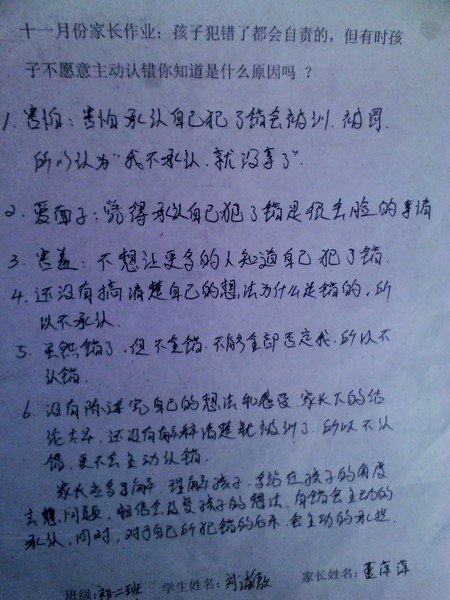 十一月份家长作业：孩子犯错了都会自责的，但有时孩
子不愿意主动认错你知道是什么原因吗 ？
1. 害怕：害怕承认自己犯了错会被训.被骂.
所以认为“我不承认.就没事了”.
2. 爱面子：觉得承认自己犯了错是很丢脸的事情
3. 害羞：不想让更多的人知道自己犯了错.
4. 还没有搞清楚自己的想法为什么是错的，所
以不承认.
5. 虽然错了，但不全错.不能全部否定我.所以不
认错.
6. 没有陈述完自己的想法和感受.家长下的结
论太早.还没有解释清楚就被训了.所以不认
错.更不会主动认错.
家长应多了解.理解孩子.多站在孩子的角度
去想问题，孩子的想法.有错会主动的
承认.同时，对于自己所犯错的后果.会主动的承担.
班级：初二班 学生姓名： 家长姓名：